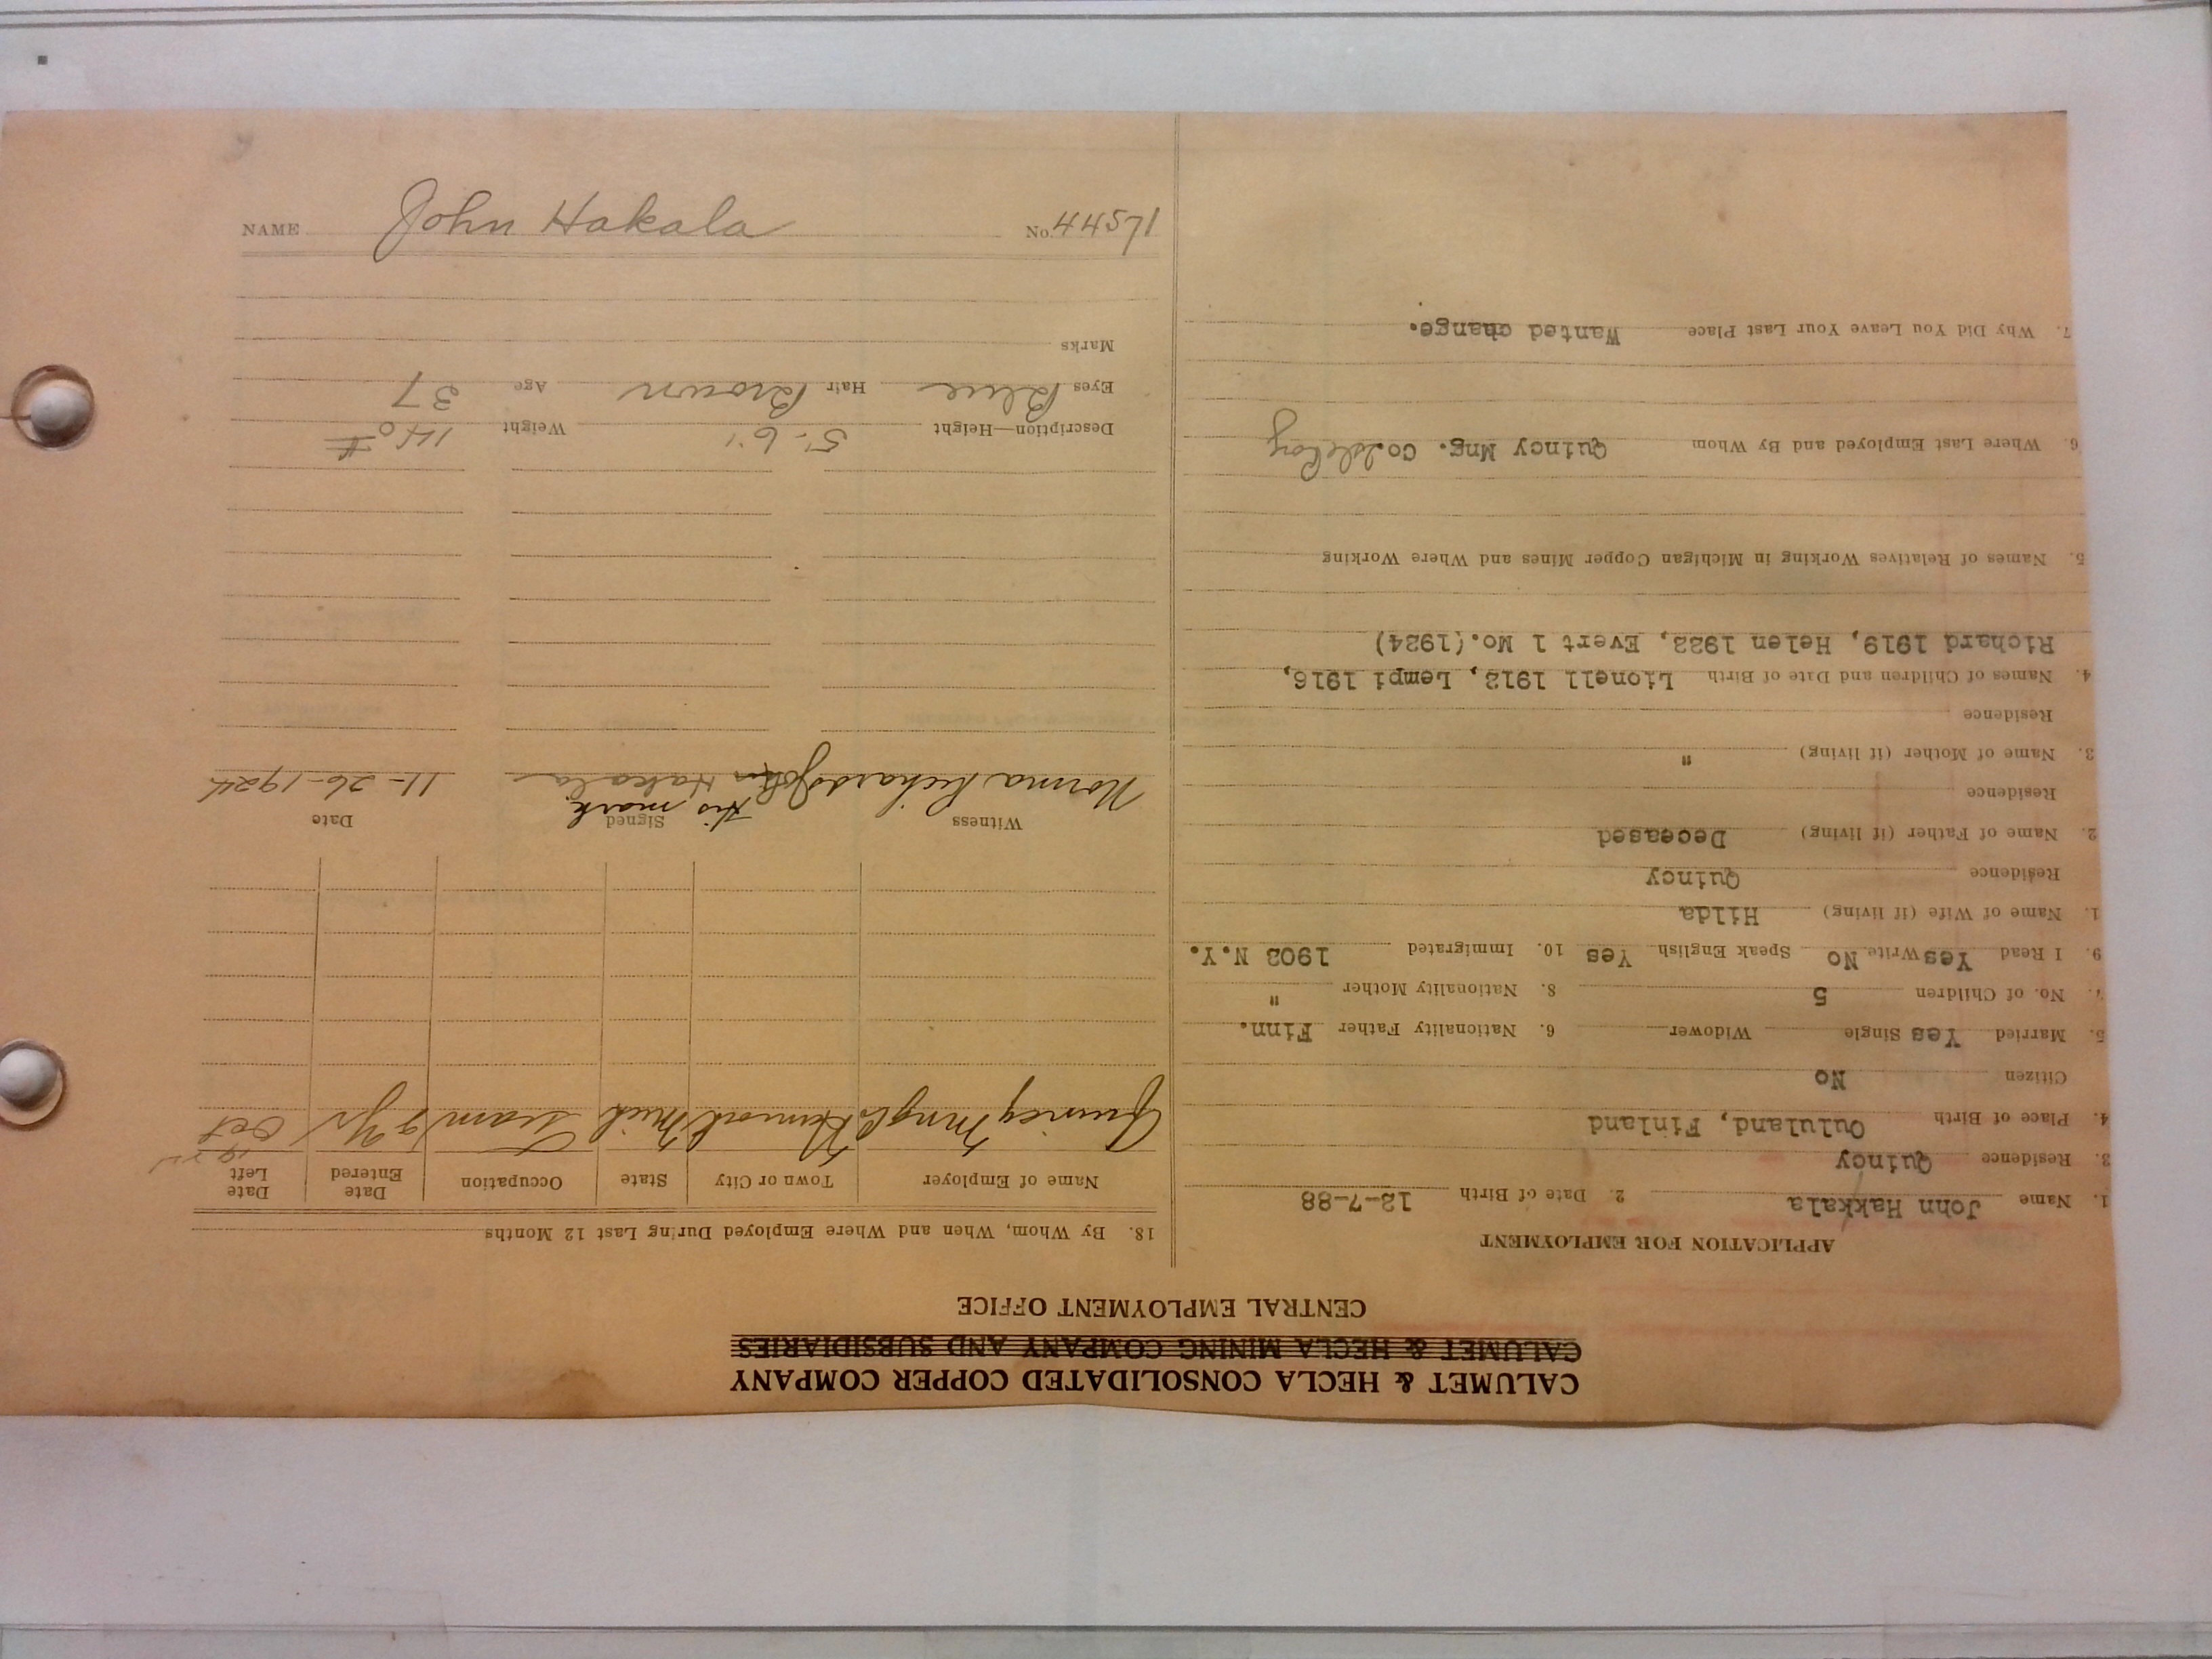 CALUMET & HECLA CONSOLIDATED COPPER COMPANY
CALUMET & HECLA MINING COMPANY AND SUBSIDIARIES
CENTRAL EMPLOYMENT OFFICE
APPLICATION FOR EMPLOYMENT
1. Name John Hakkala 2. Date of Birth 12-7-88
3. Residence Quincy
4. Place of Birth Oululand, Finland
Citizen No
5. Married Yes Single Widower 6. Nationality Father Finn.
7. No. of Children 5 8. Nationality Mother "
9. I Read Yes Write No Speak English Yes 10. Immigrated 1903 N.Y.
1. Name of Wife (if living) Hilda
Residence Quincy
2. Name of Father (if living) Deceased
Residence
3. Name of Mother (if living) "
Residence
4. Names of Children and Date of Birth Lionell 1913, Lempi 1916,
Richard 1919, Helen 1922, Evert 1 Mo.(1924)
5. Names of Relatives Working in Michigan Copper Mines and Where Working
6. Where Last Employed and By Whom Quincy Mng. Co.
7. Why Did You Leave Your Last Place Wanted change.
18. By Whom, When and Where Employed During Last 12 Months
Name of Employer Town or City State Occupation Date Entered Date Left
Quincy Mng Co Mich Team 9 Yr Oct
Witness Signed Date
his mark
Norma Richards John Hakala 11-26-1924
Description—Height 5-6" Weight 140 #
Eyes Blue Hair Brown Age 37
Marks
NAME John Hakala No. 44571